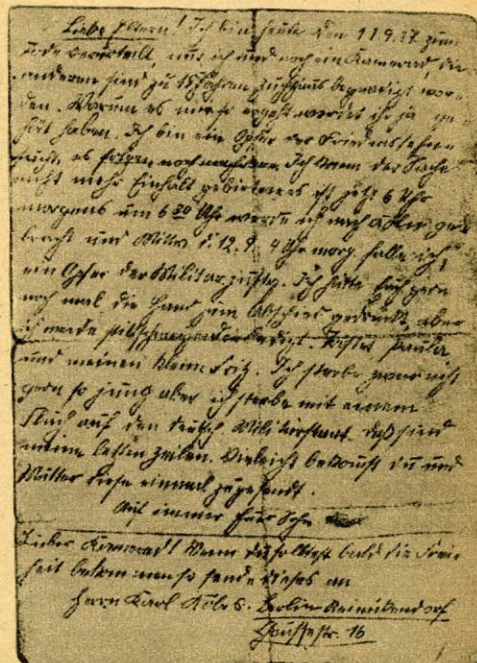 Liebe Eltern! Ich bin heute den 11.9.17 zum
Tode verurteilt, nur ich und noch ein Kamerad, die
anderen sind zu 15 Jahren Zuchthaus begnadigt wor-
den. Warum es mir so ergeht werdet ihr ja ge-
hört haben. Ich bin ein Opfer der Friedenssehn-
sucht, es folgen noch mehrere. Ich kann der Sache
nicht mehr Einhalt gebieten es ist jetzt 6 Uhr
morgens um 6 30 Uhr werde ich nach ge-
bracht und d. 12.9. 4 Uhr morg. falle ich
ein Opfer der Militärjustiz. Ich hätte Euch gern
noch mal die Hand zum Abschied gedrückt, aber
ich werde stillschweigend erledigt. Tröstet Paula
und meinen kleinen Fritz. Ich sterbe zwar nicht
gern so jung aber ich sterbe mit einem
Fluch auf den deutsch Militärstaat. Daß sind
meine letzten Zeilen. Vieleicht bekomst du und
Mutter diese einmal zugesandt.
Auf immer Euer Sohn
Lieber Kamerad! Wenn du solltest bald die Frei-
heit bekommen so sende dieses an
Herrn Karl Köbis. Berlin Reinickendorf
str. 16